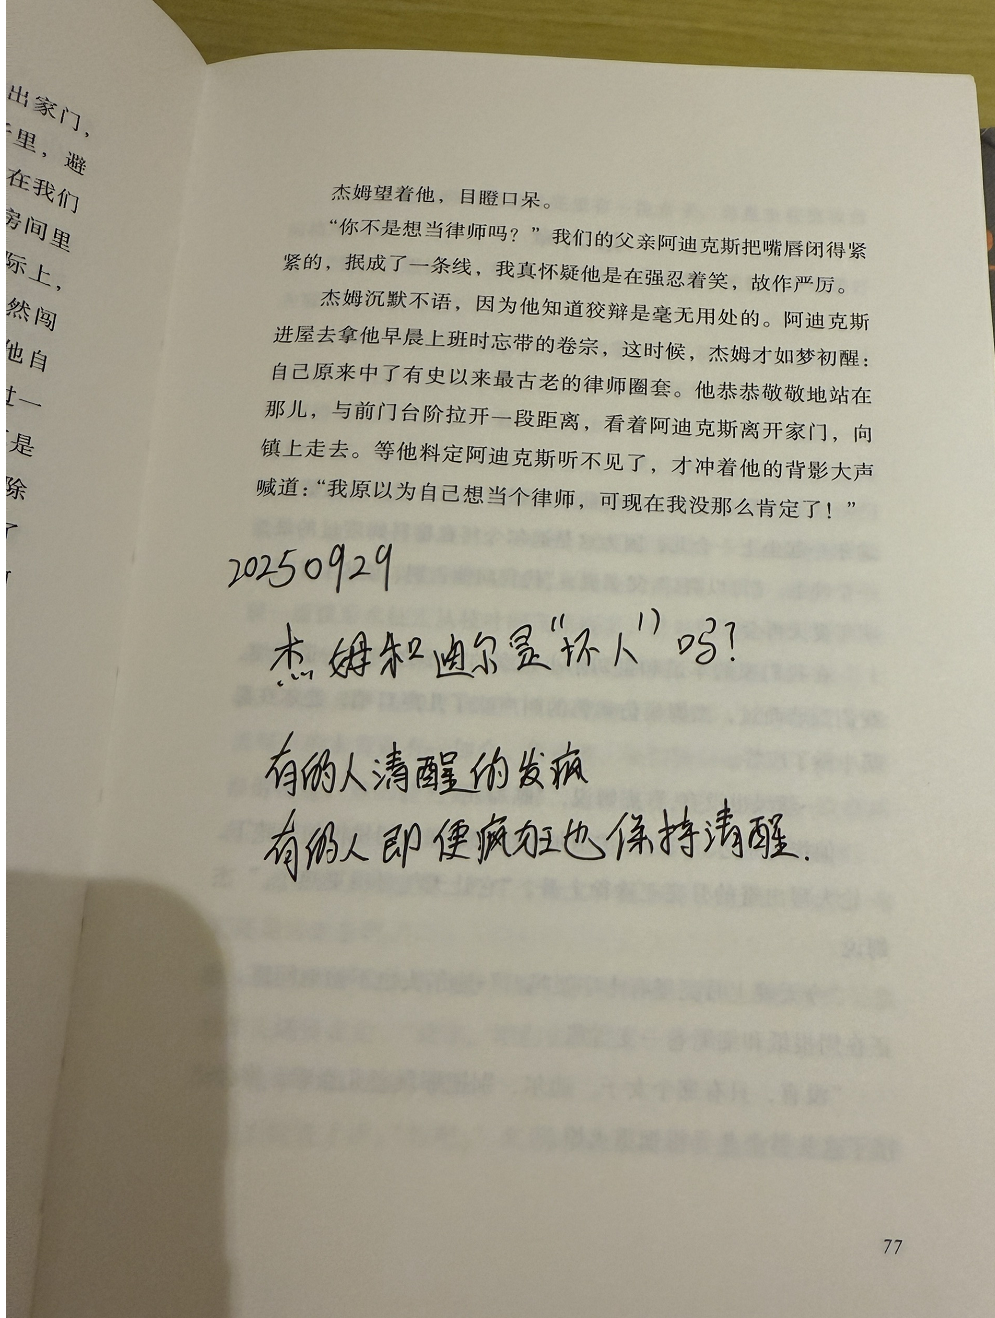 出家门，
里，避
在我们
房间里
际上，
然闯
他自
过一
是
除
了
杰姆望着他，目瞪口呆。
“你不是想当律师吗？”我们的父亲阿迪克斯把嘴唇闭得紧
紧的，抿成了一条线，我真怀疑他是在强忍着笑，故作严厉。
杰姆沉默不语，因为他知道狡辩是毫无用处的。阿迪克斯
进屋去拿他早晨上班时忘带的卷宗，这时候，杰姆才如梦初醒：
自己原来中了有史以来最古老的律师圈套。他恭恭敬敬地站在
那儿，与前门台阶拉开一段距离，看着阿迪克斯离开家门，向
镇上走去。等他料定阿迪克斯听不见了，才冲着他的背影大声
喊道：“我原以为自己想当个律师，可现在我没那么肯定了！”
20250929
杰姆和迪尔是“坏人”吗？
有的人清醒的发疯
有的人即便疯狂也保持清醒.
77